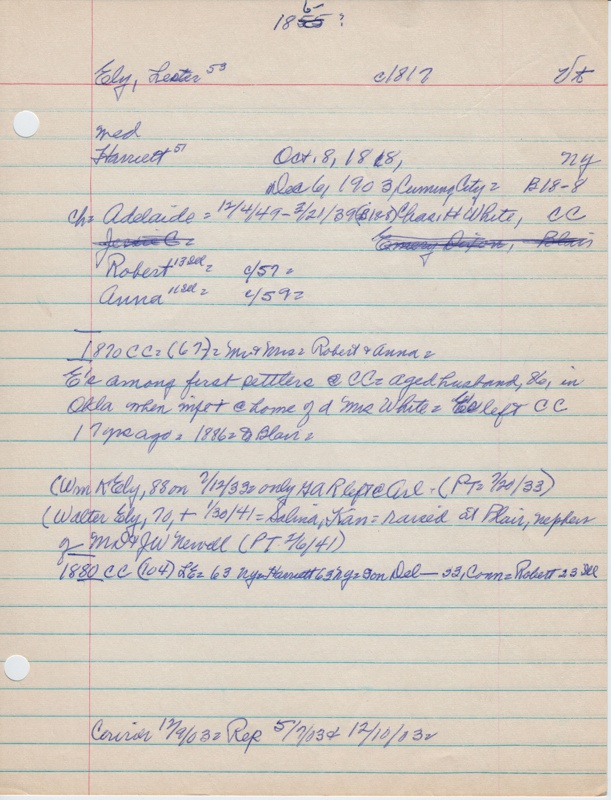 6
1855 ?
Ely, Lester 53 c/817 Vt
med
Harriett 51 Oct. 8, 1818, NY
Dec 6, 1903, Cuming City = B18-8
ch = Adelaide = 12/4/49 - 2/21/39 (B128) Chas. H White, CC
Jessie C = Emery Dixon, Blair
Robert 13 Ill = c/57 =
Anna 11 Ill = c/59 =
1870 CC = (67) = Mr + Mrs = Robert + Anna =
E's among first settlers @ CC = aged husband, 86, in
Okla when mpt @ home of d Mrs White = E's left CC
17 yrs ago = 1886 = Blair =
(Wm K Ely, 88 on 7/12/33 = only GAR left @ Arl - (PT = 7/20/33)
(Walter Ely, 70, + 1/30/41 = Salina, Kan = raised at Blair, nephew
of Mr + J W Newell (PT 2/6/41)
1880 CC (104) LE = 63 Ny = Harriett 63 Ny = son Del — 33, Conn = Robert 23 Ill
Courier 12/9/03 = Rep 5/7/03 + 12/10/03 =